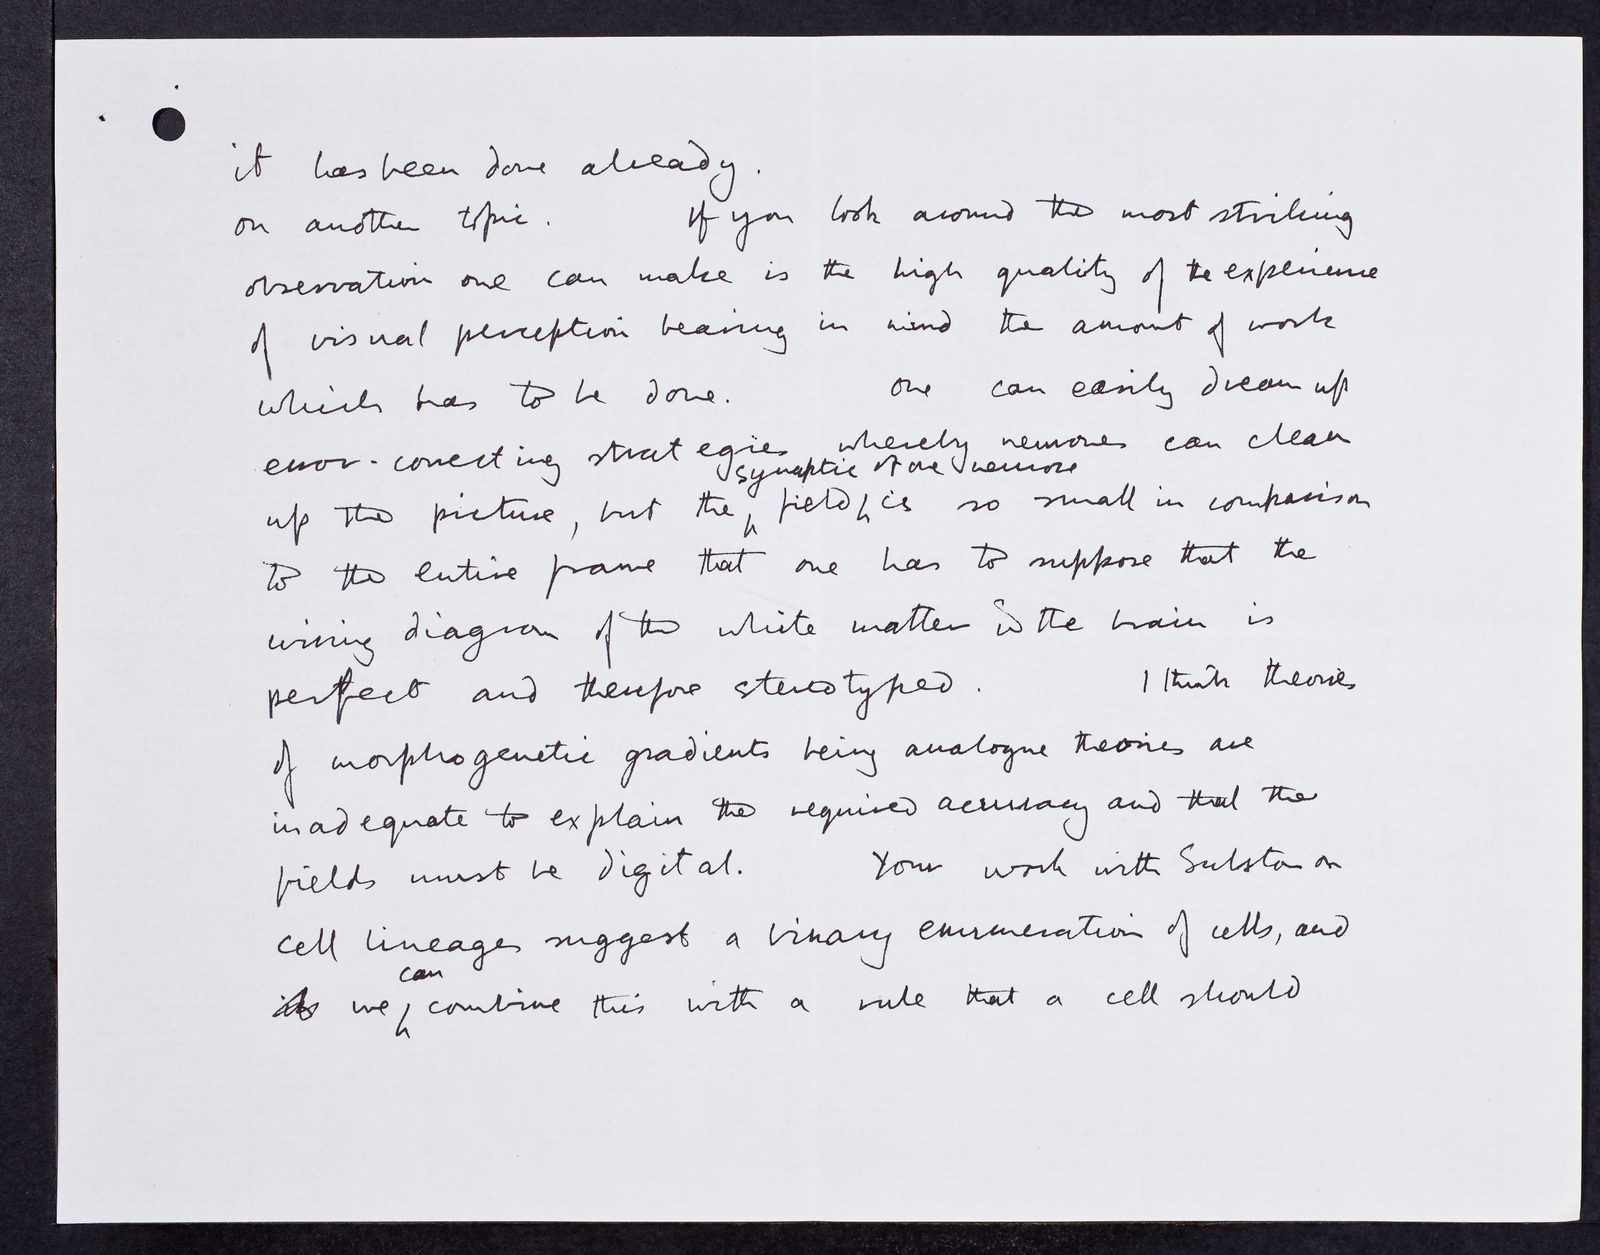 it has been done already.
on another topic. If you look around the most striking
observation one can make is the high quality of the experience
of visual perception bearing in mind the amount of work
which has to be done. one can easily dream up
error-correcting strategies whereby neurones can clean
synaptic of one neurone
up the picture, but the field is so small in comparison
to the entire frame that one has to suppose that the
wiring diagram of the white matter in the brain is
perfect and therefore stereotyped. I think theories
of morphogenetic gradients being analogue theories are
inadequate to explain the required accuracy and that the
fields must be digital. Your work with Sulston on
cell lineages suggest a binary enumeration of cells, and
can
we combine this with a rule that a cell should